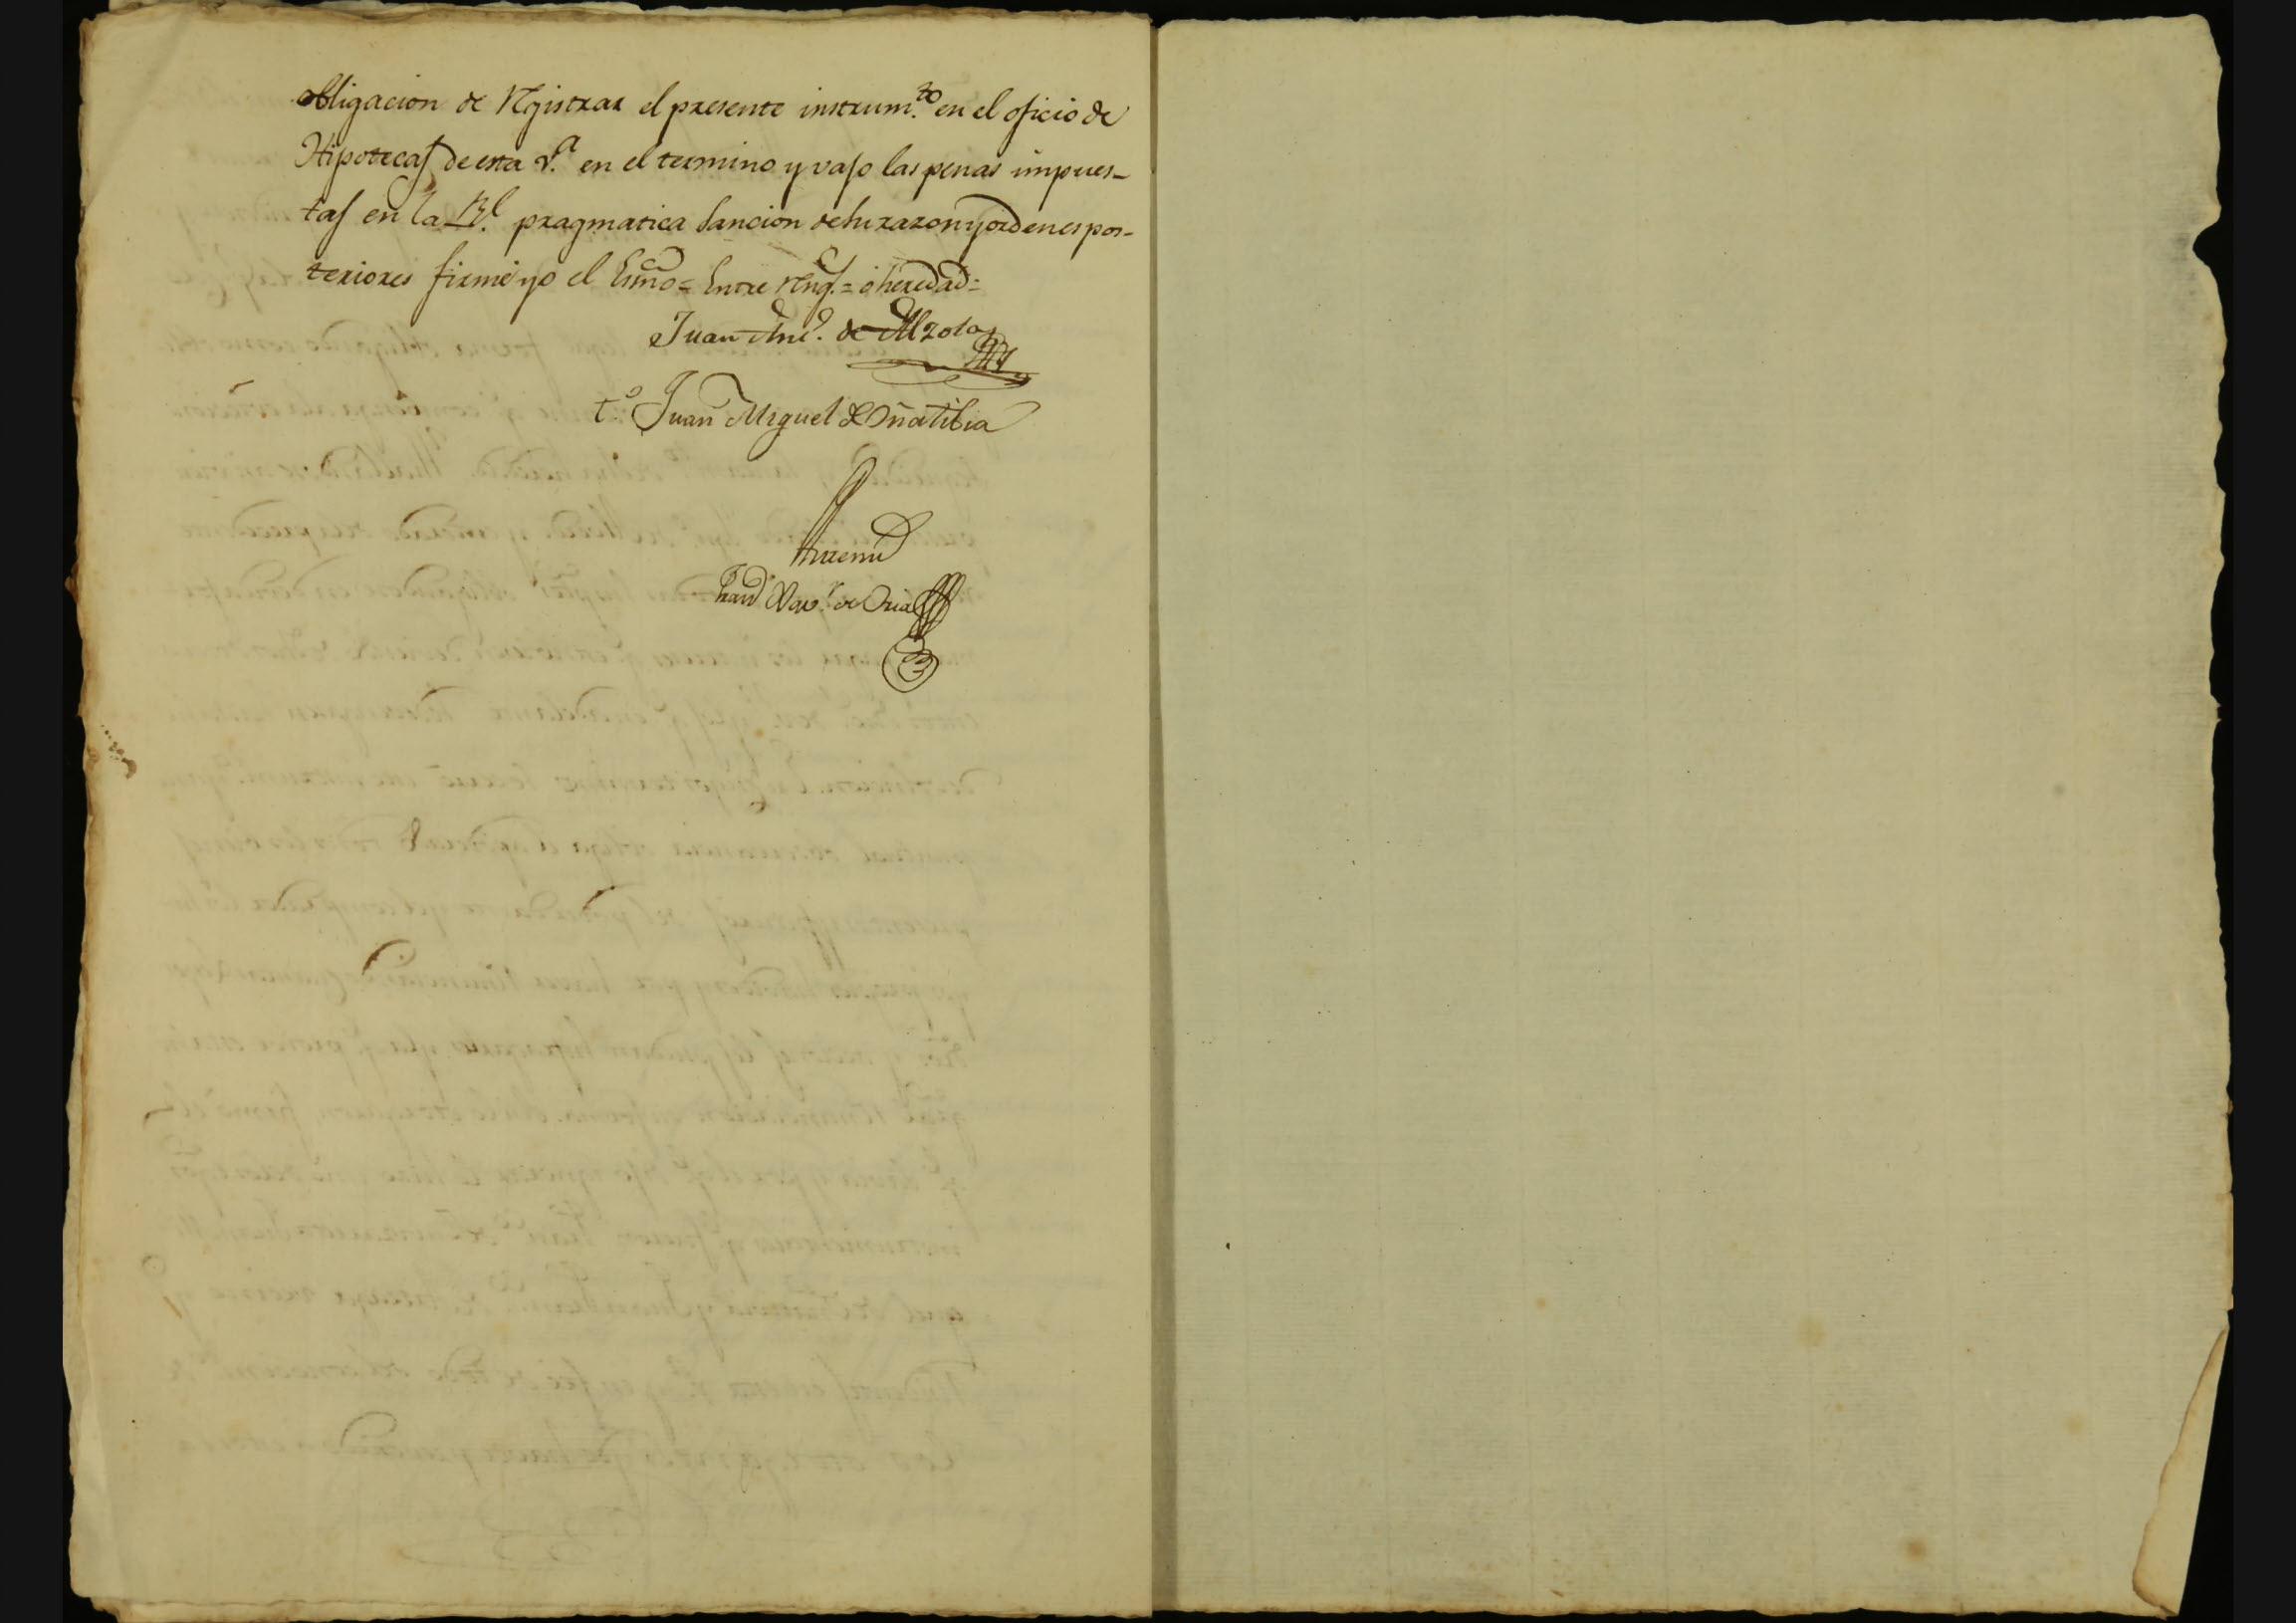 obligacion de registrar el presente instrum.to en el oficio de
Hipotecas de esta v.a en el termino y vajo las penas impues-
tas en la Rl. pragmatica sancion de su razon y ordenes pos-
teriores firmé yo el Esno = Entre reng.s = ó heredad =
Juan Ant.o de Alzola
t.o Juan Miguel de Oñatibia
Antemi
de Oria